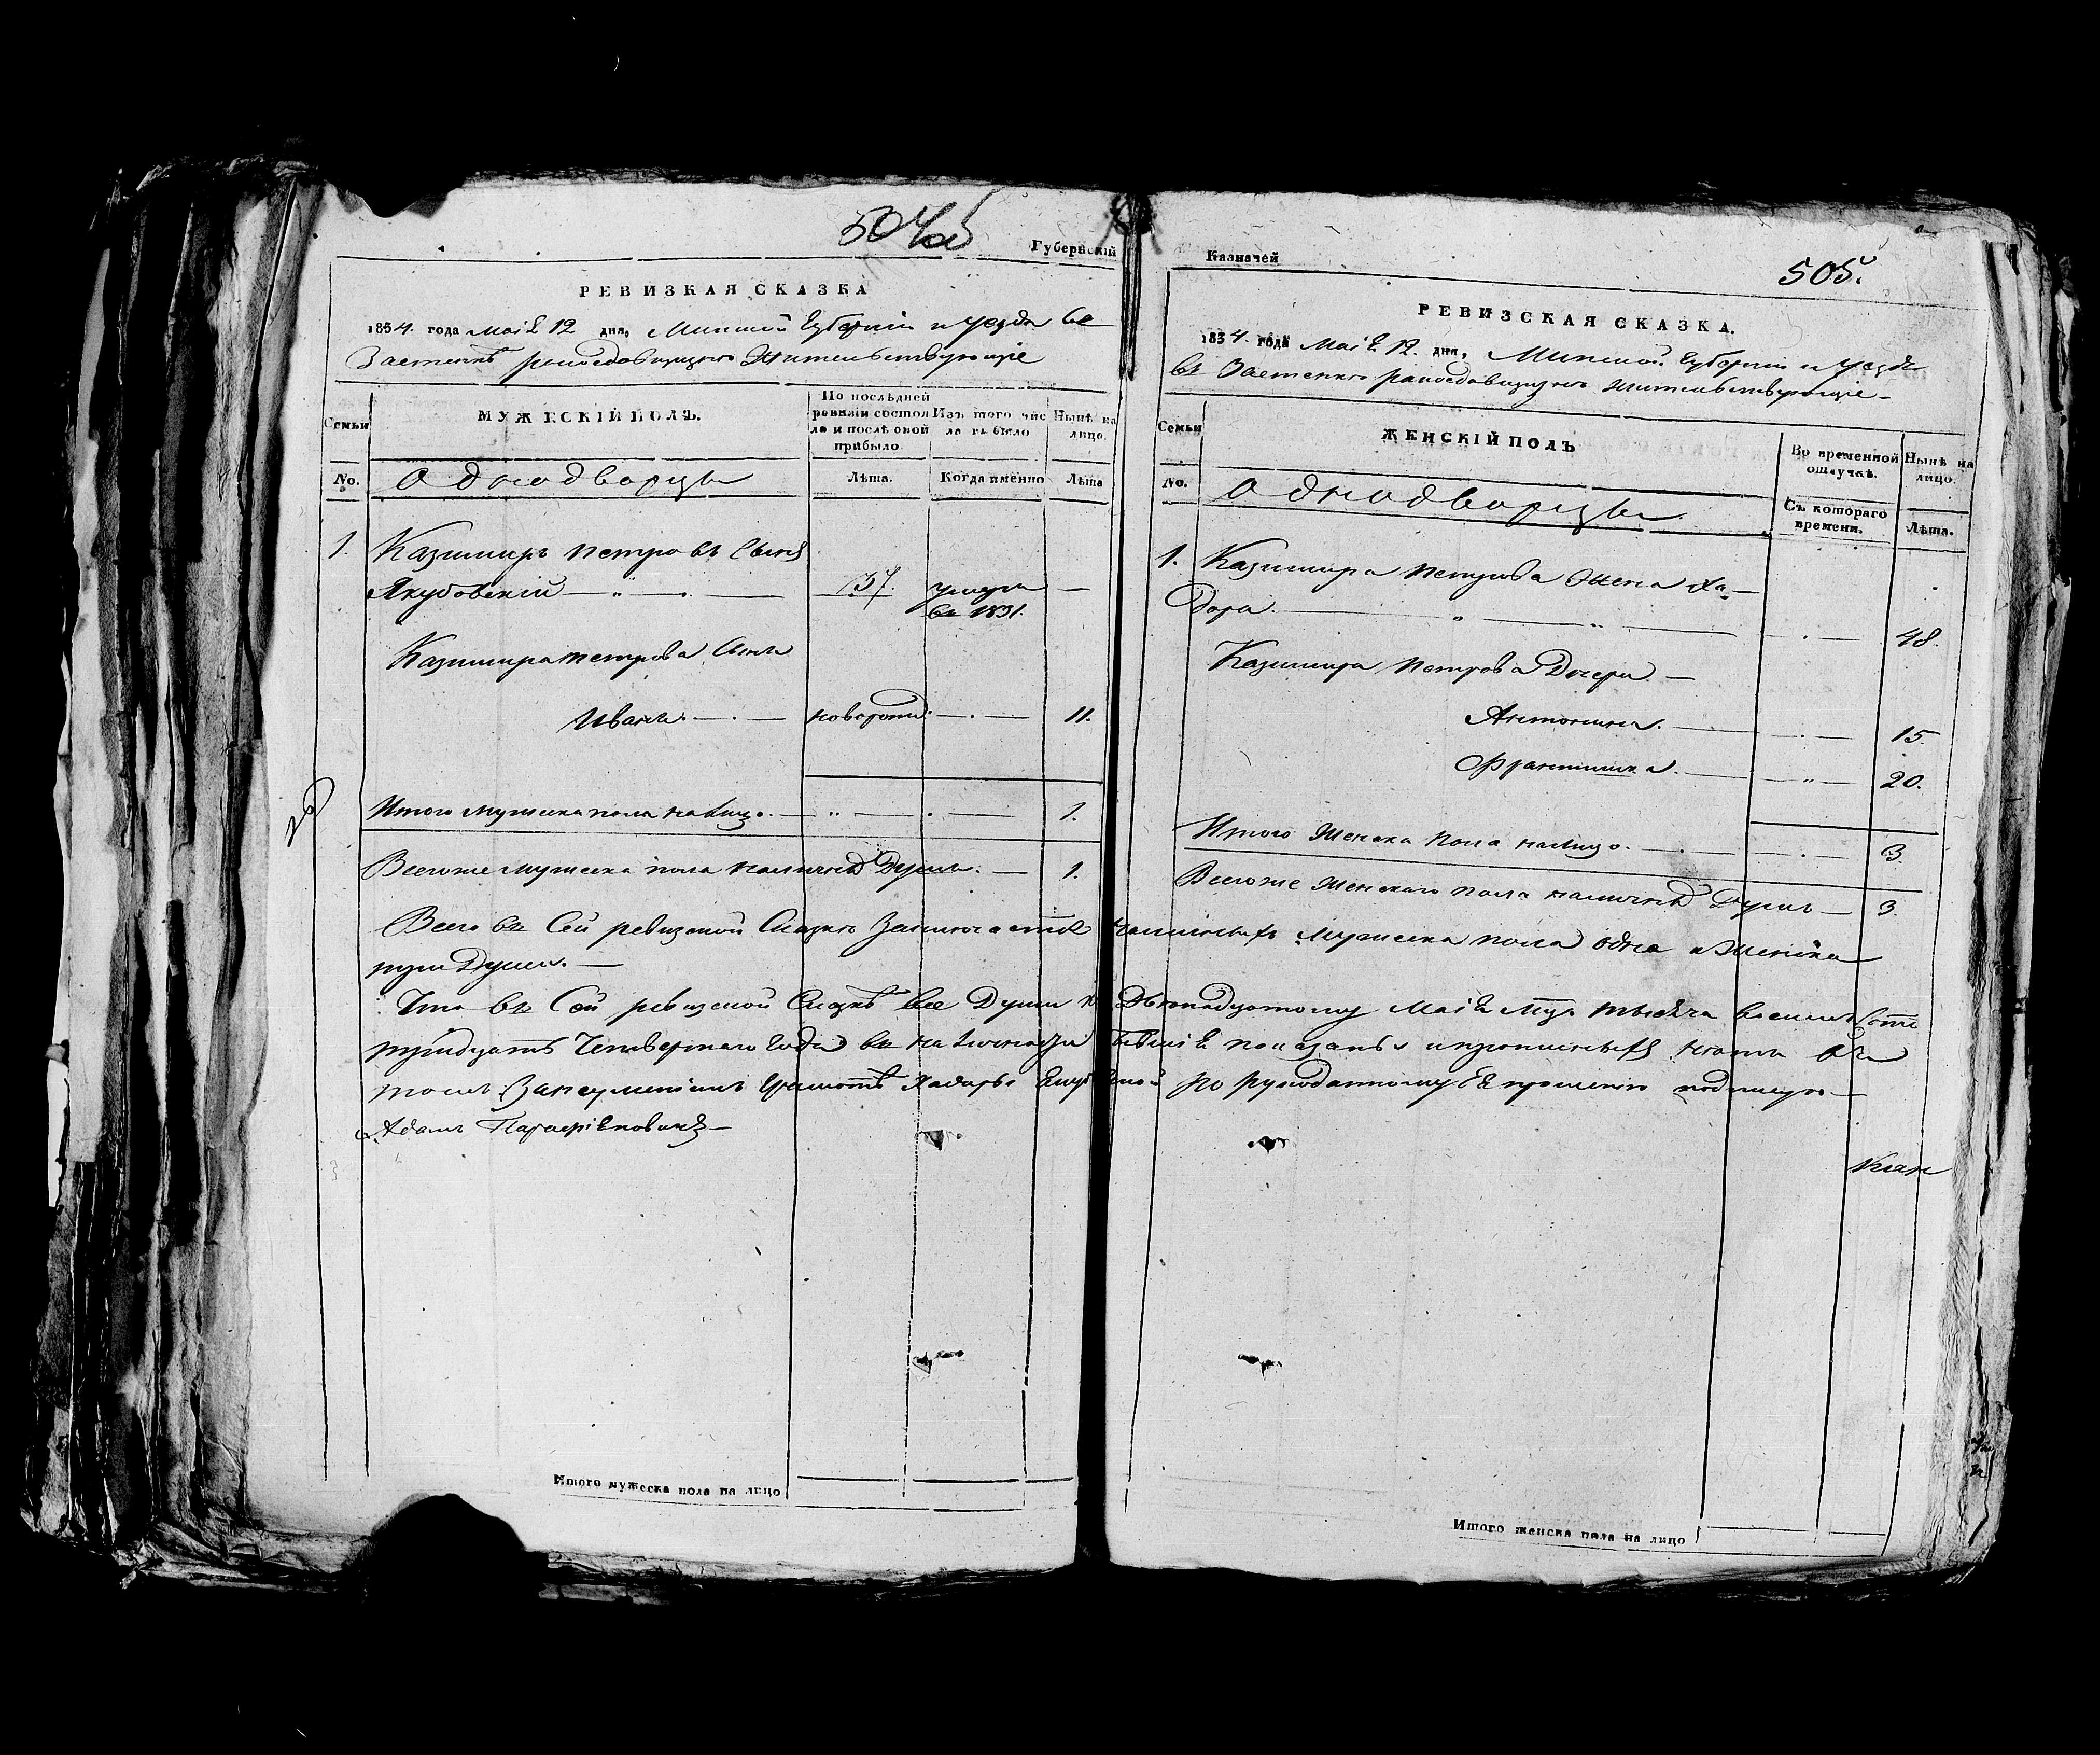 504об
Губернскій
РЕВИЗКАЯ СКАЗКА
1834. года Маія 12 дня, Минской Губерніи и уезда въ
Застенкѣ жительствующіе
Семьи
МУЖЕСКІЙ ПОЛЪ.
По послѣдней ревизіи состояло и послѣ оной прибыло
Изъ того числа выбыло
Нынѣ на лицо.
No.
Однодворцы
Лѣта.
Когда имѣнно
Лѣта
1. Казимиръ Петровъ Сынъ
Якубовскій — „ — . — 37. умеръ —
въ 1831.
Казимира Петрова Сынъ
Иванъ. — . — новорожд: — . — 11.
Итого мужеска пола на лицо. — „ — . — 1.
Всего же мужеска пола наличныхъ Душъ. — 1.
Казначей
505.
РЕВИЗСКАЯ СКАЗКА.
1834. года Маія 12. дня, Минской Губерніи и уезда
въ Застенкѣ жительствующіе —
Семьи
ЖЕНСКІЙ ПОЛЪ
Во временной отлучкѣ.
Нынѣ на лицо.
No.
Однодворцы
Съ котораго времени.
Лѣта.
1. Казимира Петрова Жена Ха-
дора. — „ — „ — . — 48.
Казимира Петрова Дочери. —
Антонина. — . — 15.
Франтишка. — „ — 20.
Итого Женска Пола на лицо. — . — . — 3.
Всего же Женскаго пола наличныхъ Душъ — 3.
Всего въ Сей ревизской Сказкѣ Заключается наличныхъ Мужеска пола одна и Женска
три Души. —
Что въ Сей ревизской Сказкѣ все Души по Двенадцатому Маія Мца тысяча восемь Сотъ
тридцать Четвертаго Года въ наличности бывшія показаны и прописныхъ нетъ въ
томъ Занеуменіемъ Грамотѣ Хадоры Якубовской по рукоданному Ея прошенію подписую —
Адамъ —
Итого мужеска пола на лицо
Итого женска пола на лицо